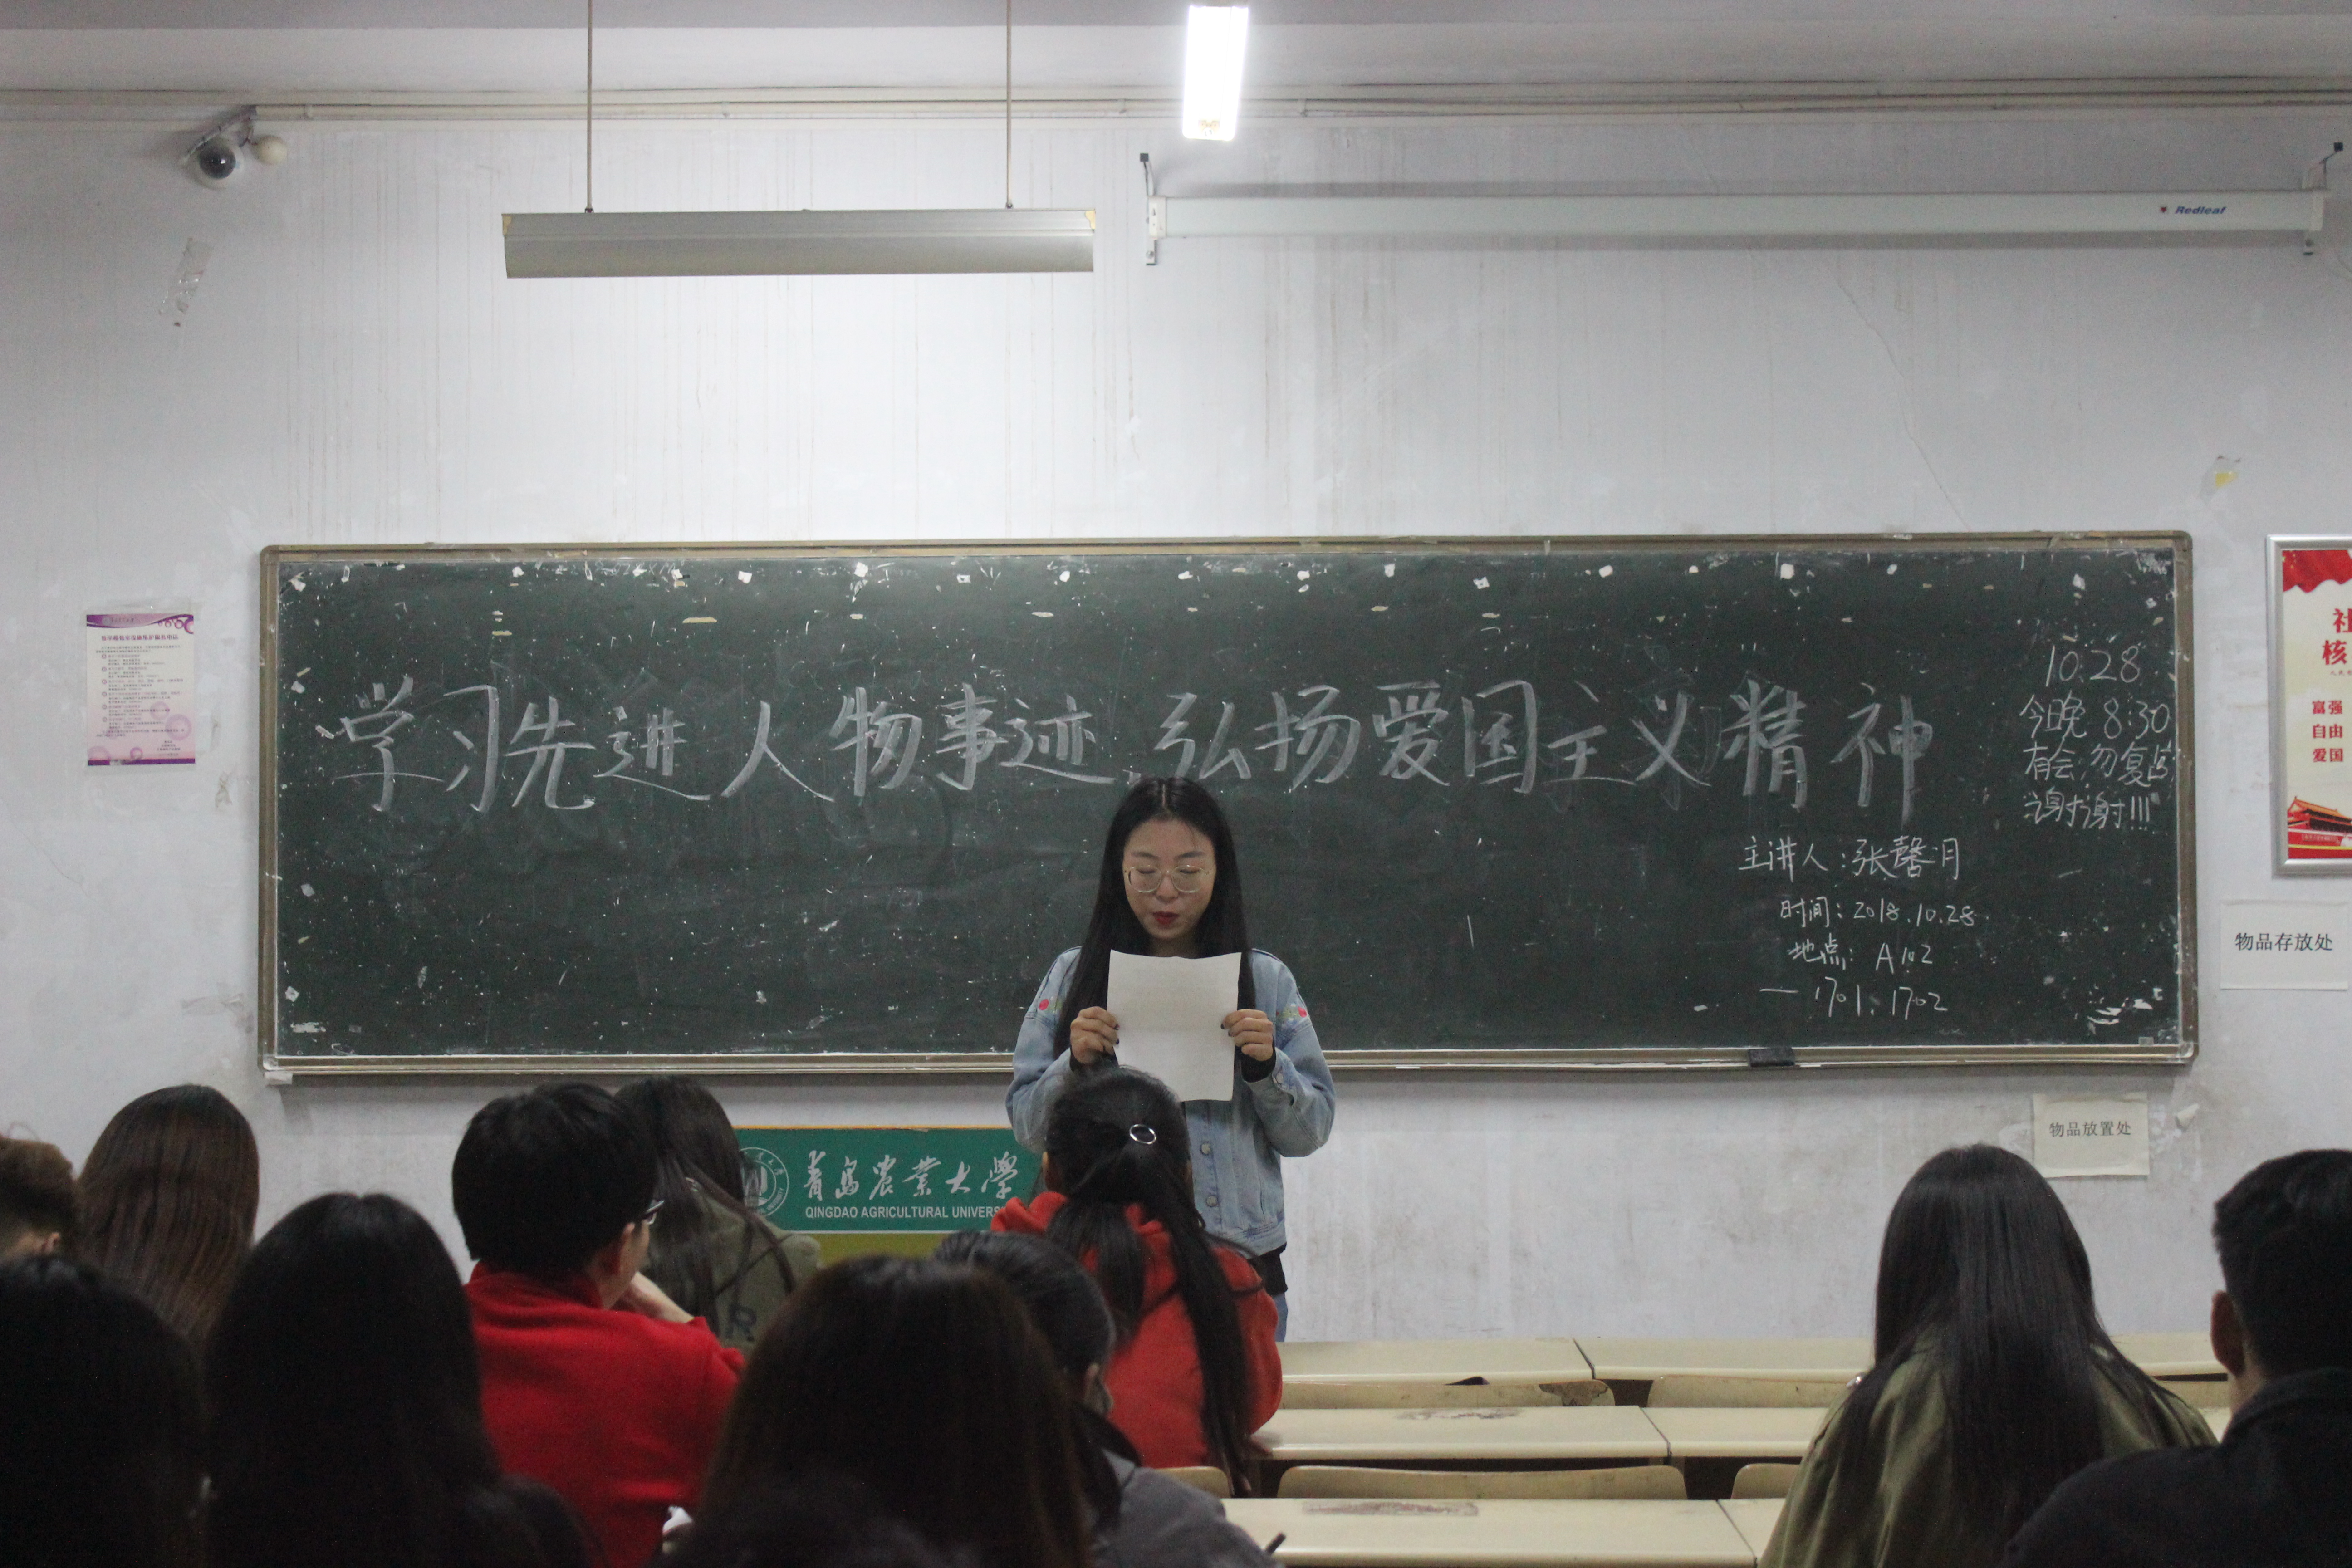 Redleaf
学习先进人物事迹 弘扬爱国主义精神
10.28
今晚 8:30
有会,勿复习
谢谢!!!
主讲人:张馨月
时间:2018.10.28.
地点:A102
一 1701、1702
社
核
富强
自由
爱国
物品存放处
物品放置处
青岛农业大学
QINGDAO AGRICULTURAL UNIVERS